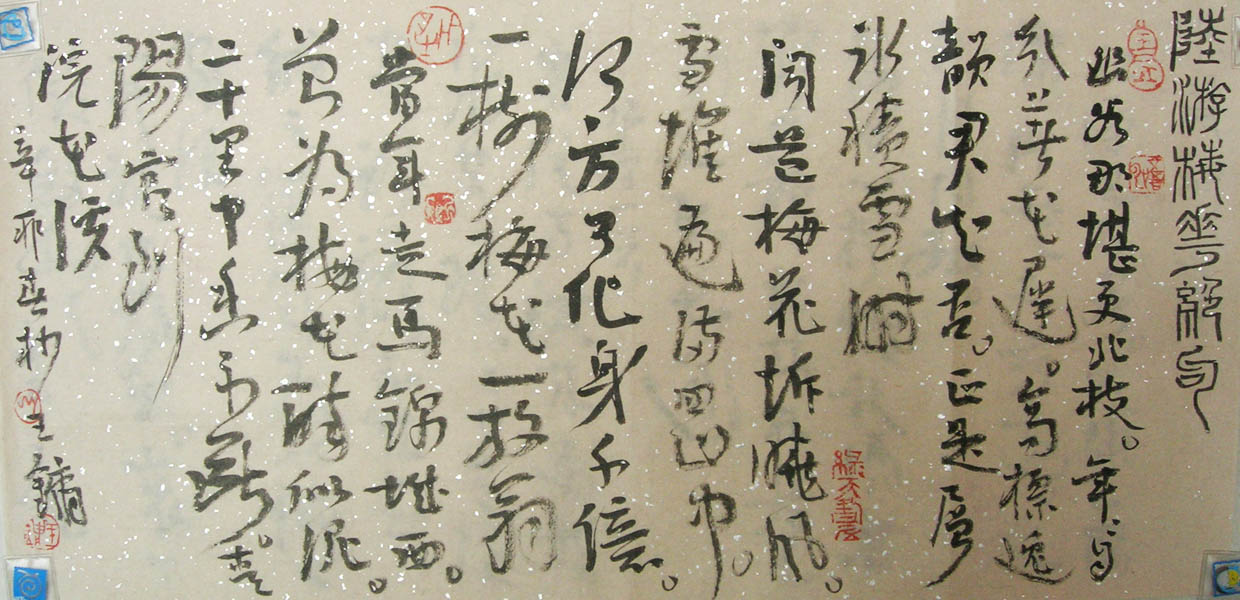 陸游梅華絕句
幽谷那堪更北枝。年々自
分著花遲。高標逸
韻君知否。正是層
冰積雪時
聞道梅花坼曉風。
雪堆遍滿四山中。
何方可化身千億。
一樹梅花一放翁
當年走馬錦城西。
曾為梅花醉似泥。
二十里中香不斷。青
陽宮到
浣花溪
辛卯春杪 王鏞